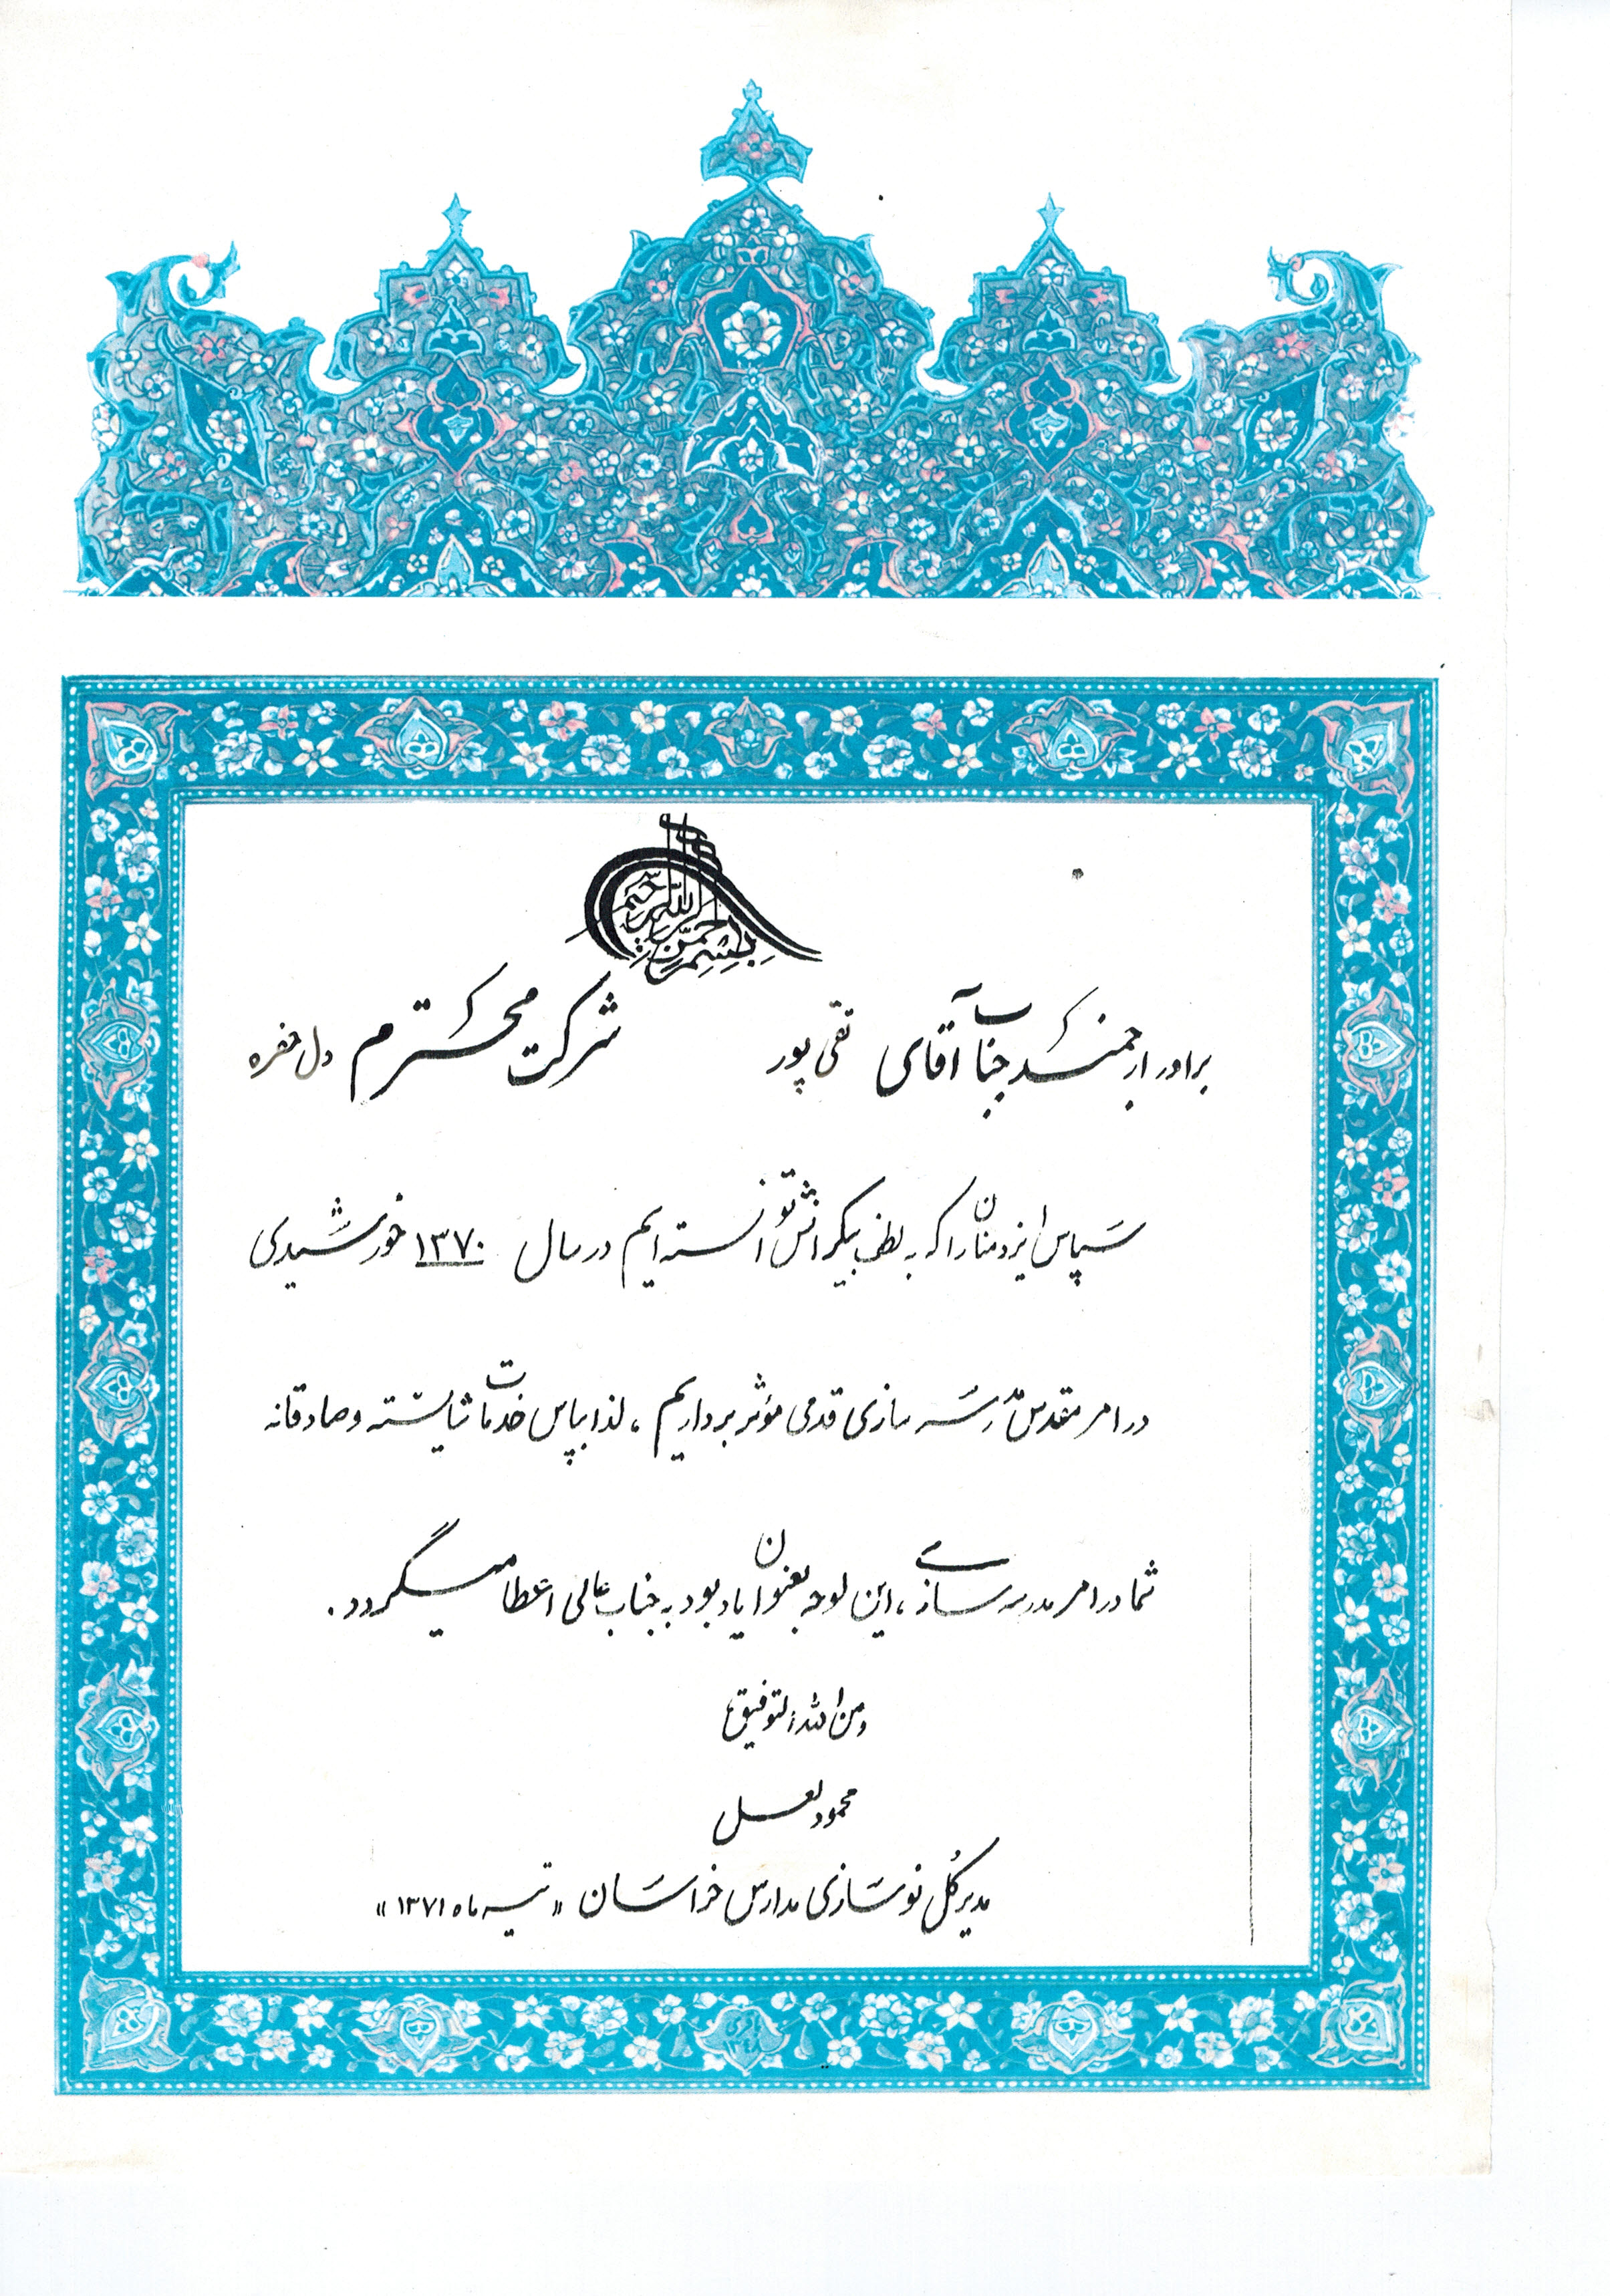 بسم الله الرحمن الرحیم
برادر ارجمند جناب آقای تقی پور شرکت محترم دل حفره
سپاس ایزد منان را که به لطف بیکرانش توانسته ایم در سال ۱۳۷۰ خورشیدی
در امر مقدس مدرسه سازی قدمی مؤثر برداریم، لذا بپاس خدمات شایسته و صادقانه
شما در امر مدرسه سازی، این لوحه بعنوان یادبود به جناب عالی اعطا میگردد.
ومن الله التوفیق
محمود لعل
مدیر کل نوسازی مدارس خراسان «تیر ماه ۱۳۷۱»